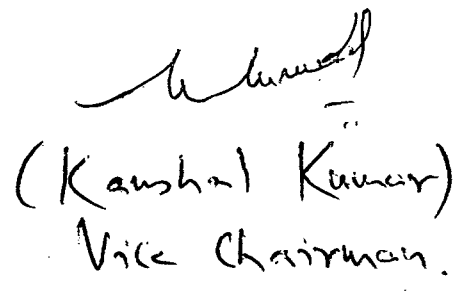 (Kaushal Kumar)
Vice Chairman.